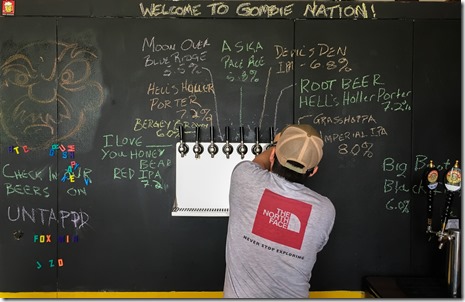 WELCOME TO GOMBIE NATION!
MOON OVER
BLUE RIDGE
5.5%
ASKA
PALE ALE
5.8%
DEVIL'S DEN
IPA - 6.8%
HELL'S HOLLER
PORTER
7.2%
ROOT BEER
HELL'S HOLLER PORTER
7.2%
BERGEY
6.0
GRASSHOPPA
IMPERIAL IPA
8.0%
I LOVE
YOU HONEY
BEAR
RED IPA
7.2
BIG
6.0
CHECK IN
BEERS ON
UNTAPPD
FOX
THE
NORTH
FACE
NEVER STOP EXPLORING